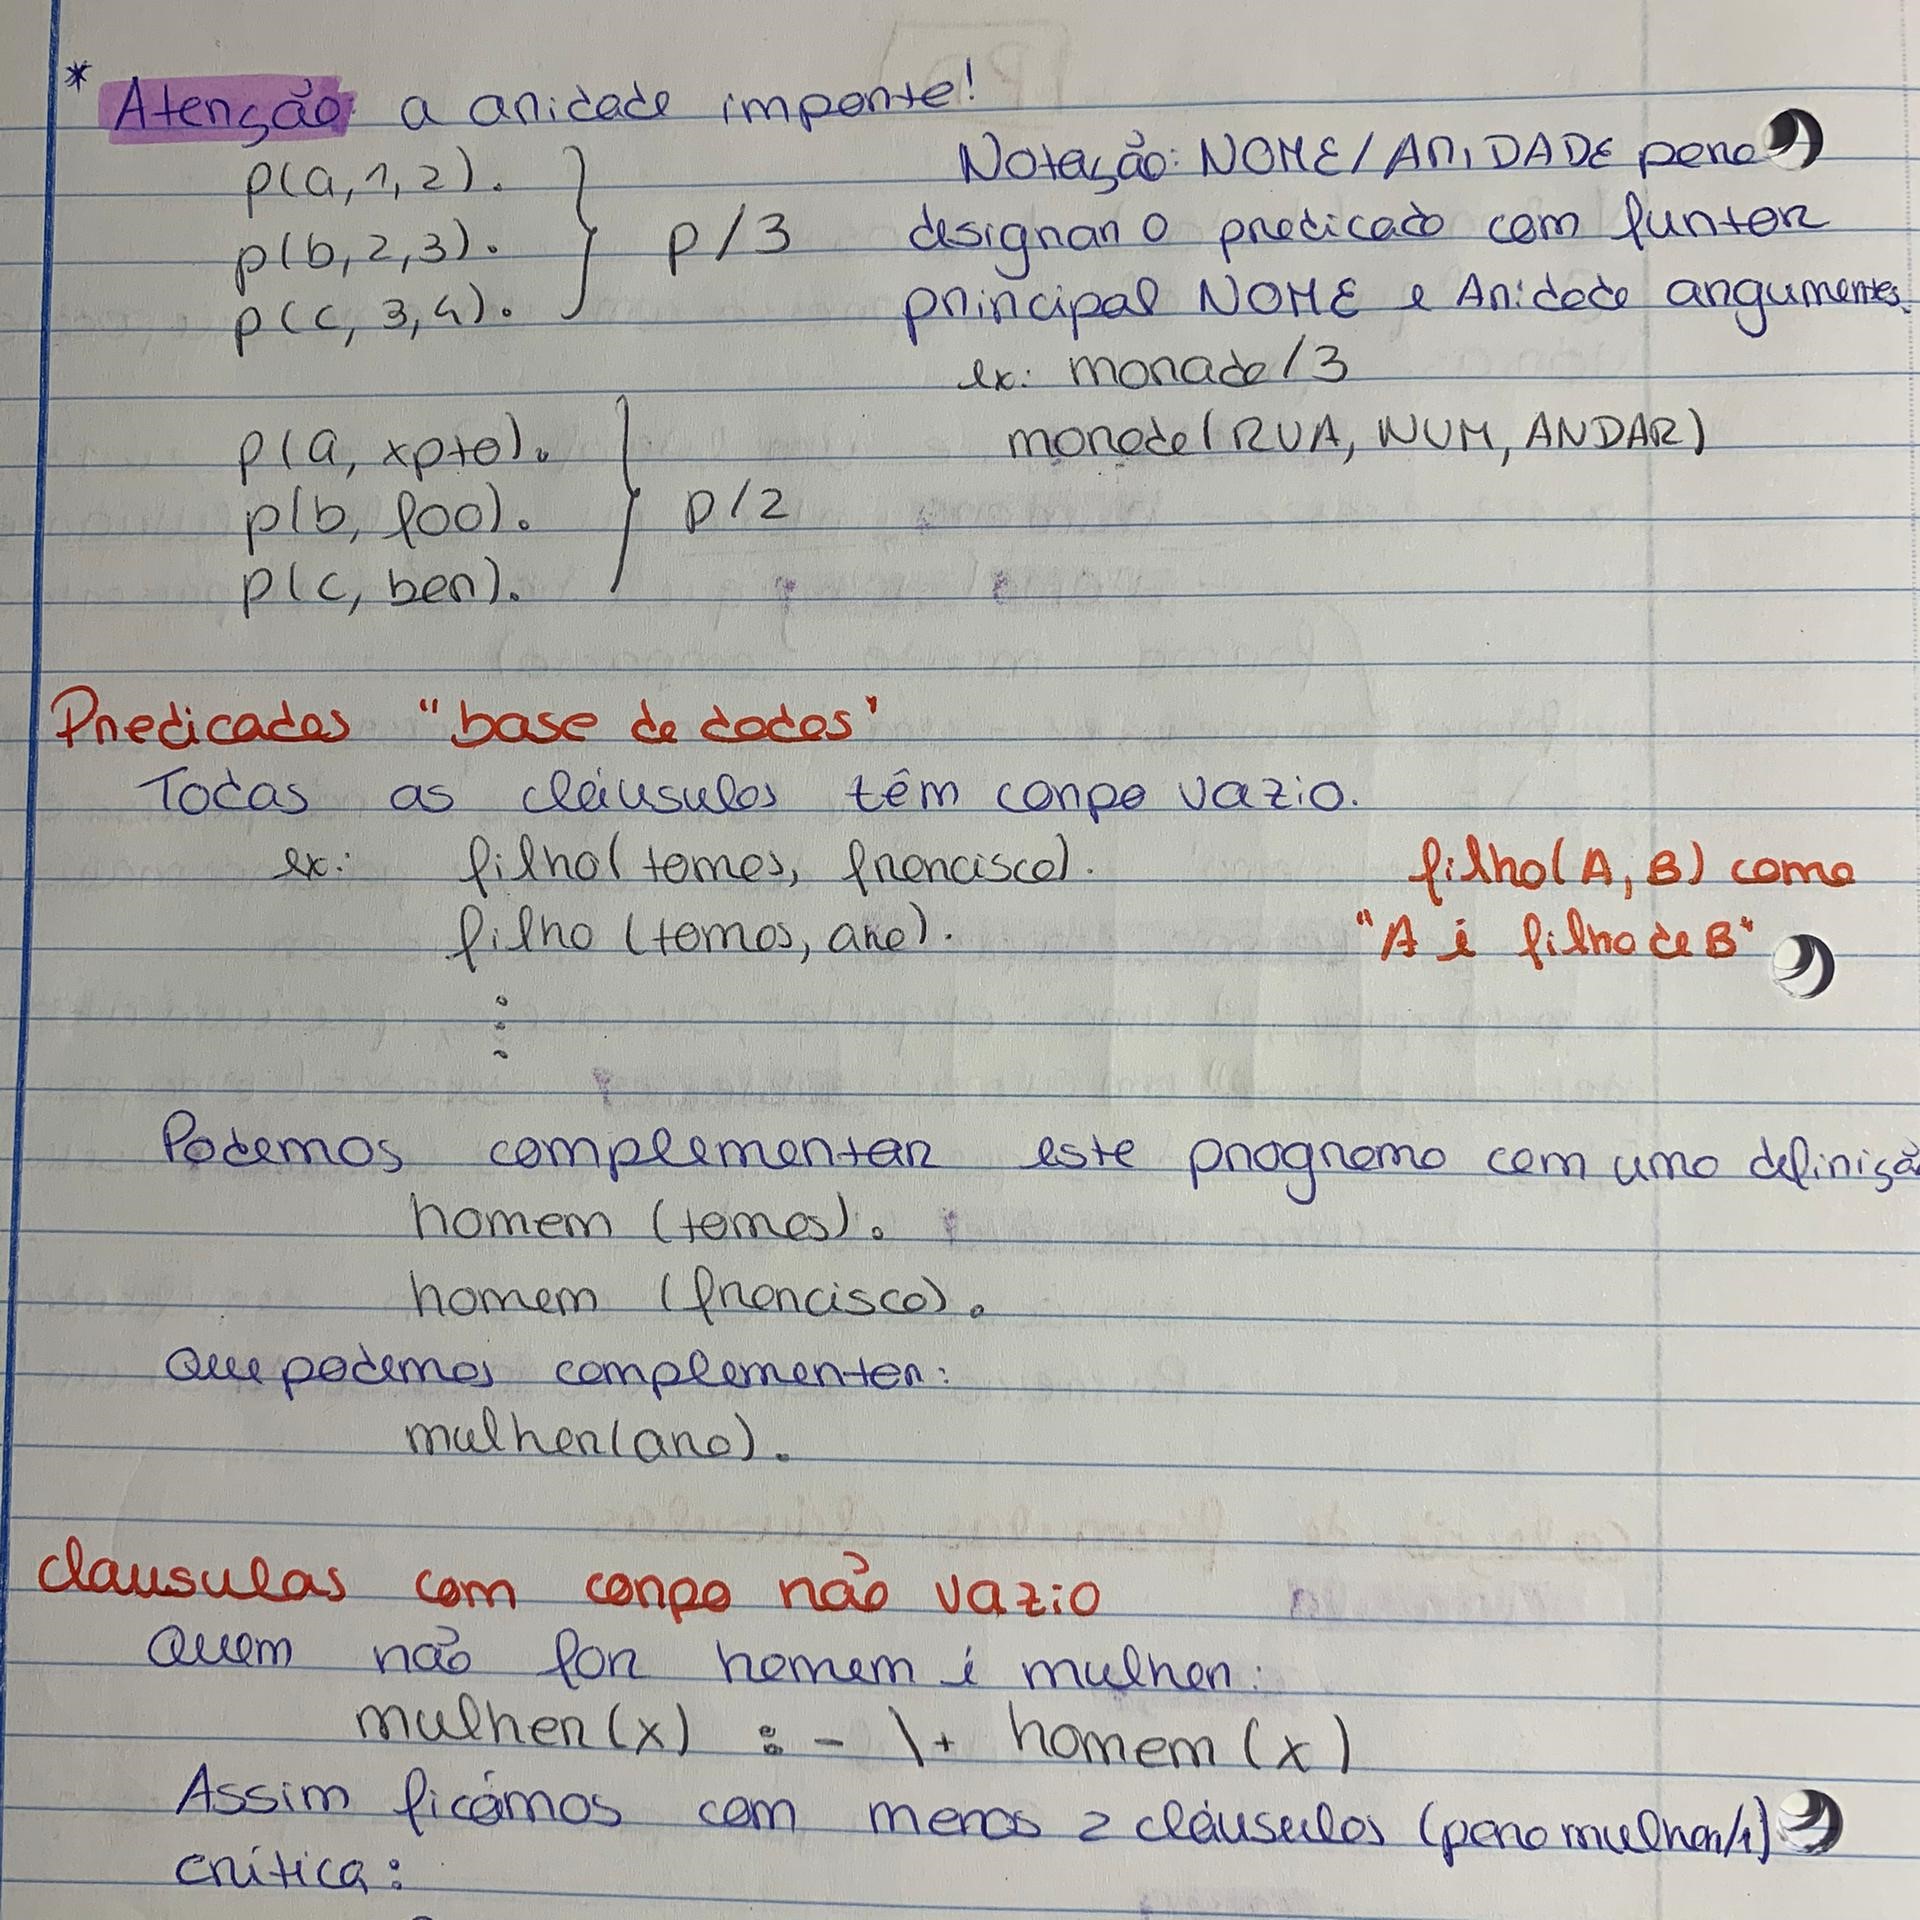 * Atenção a aridade importe!
p(a,1,2).
p(b,2,3).
p(c,3,4).
p/3
Notação: NOME/ARIDADE para
designar o predicado com funtor
principal NOME e Aridade argumentos.
ex: morada/3
morada(RUA, NUM, ANDAR)
p(a, xpto).
p(b, foo).
p(c, bar).
p/2
Predicados "base de dados"
Todas as cláusulas têm corpo vazio.
ex: filho(tomas, francisco).
filho (tomas, ana).
⋮
filho(A, B) como
"A é filho de B"
Podemos complementar este programa com uma definiçã
homem (tomas).
homem (francisco).
Que podemos complementar:
mulher(ana).
clausulas com corpo não vazio
Quem não for homem é mulher:
mulher(x) :- \+ homem(x)
Assim ficámos com menos 2 cláusulas (para mulher/1)
crítica: